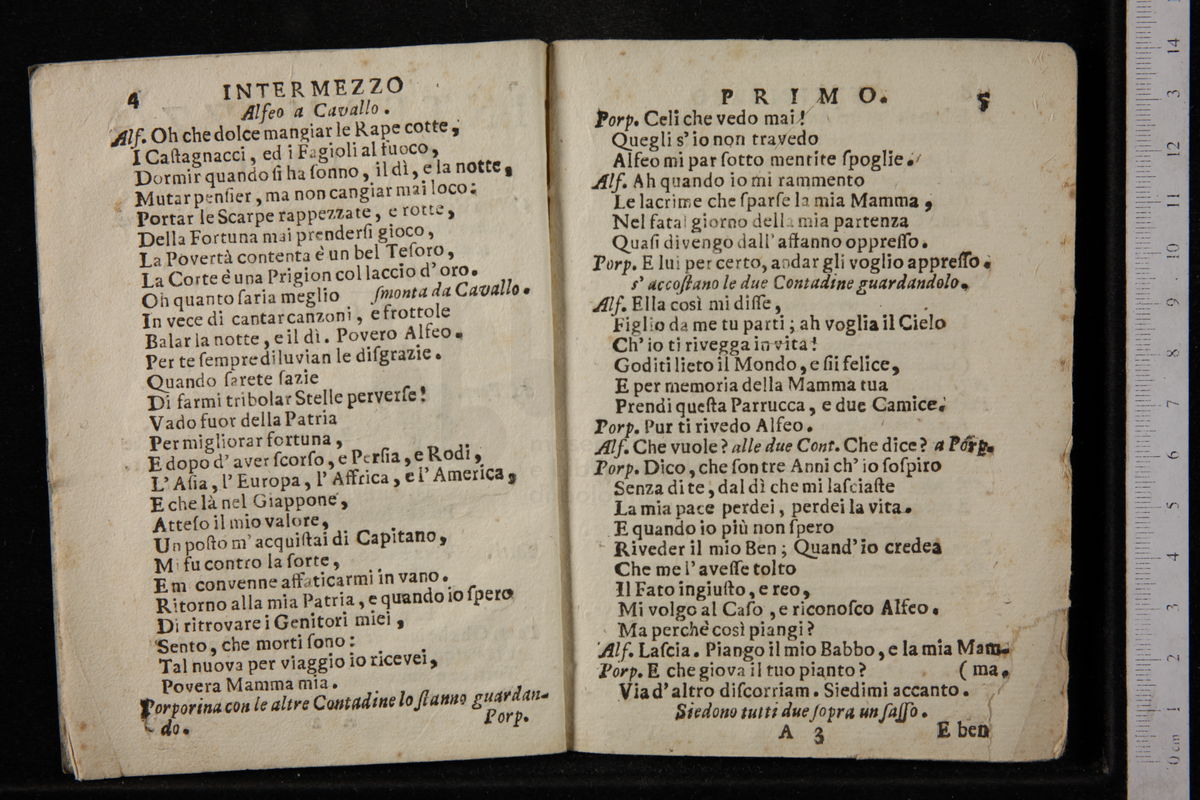 4
INTERMEZZO
Alfeo a Cavallo.
Alf. Oh che dolce mangiar le Rape cotte,
I Caſtagnacci, ed i Fagioli al fuoco,
Dormir quando ſi ha ſonno, il dì, e la notte,
Mutar penſier, ma non cangiar mai loco:
Portar le Scarpe rappezzate, e rotte,
Della Fortuna mai prenderſi gioco,
La Povertà contenta è un bel Teſoro,
La Corte è una Prigion col laccio d'oro.
Oh quanto ſaria meglio ſmonta da Cavallo.
In vece di cantar canzoni, e frottole
Balar la notte, e il dì. Povero Alfeo.
Per te ſempre diluvian le diſgrazie.
Quando ſarete ſazie
Di farmi tribolar Stelle perverſe!
Vado fuor della Patria
Per migliorar fortuna,
E dopo d'aver ſcorſo, e Perſia, e Rodi,
L'Aſia, l'Europa, l'Affrica, e l'America,
E che là nel Giappone,
Atteſo il mio valore,
Un poſto m'acquiſtai di Capitano,
Mi fu contro la ſorte,
E m convenne affaticarmi in vano.
Ritorno alla mia Patria, e quando io ſpero
Di ritrovare i Genitori miei,
Sento, che morti ſono:
Tal nuova per viaggio io ricevei,
Povera Mamma mia.
Porporina con le altre Contadine lo ſtanno guardan-
do.
Porp.
PRIMO.
5
Porp. Celi che vedo mai!
Quegli s'io non travedo
Alfeo mi par ſotto mentite ſpoglie.
Alf. Ah quando io mi rammento
Le lacrime che ſparſe la mia Mamma,
Nel fatal giorno della mia partenza
Quaſi divengo dall'affanno oppreſſo.
Porp. E lui per certo, andar gli voglio appreſſo.
s'accoſtano le due Contadine guardandolo.
Alf. Ella così mi diſſe,
Figlio da me tu parti; ah voglia il Cielo
Ch'io ti rivegga in vita!
Goditi lieto il Mondo, e ſii felice,
E per memoria della Mamma tua
Prendi queſta Parrucca, e due Camice.
Porp. Pur ti rivedo Alfeo.
Alf. Che vuole? alle due Cont. Che dice? a Porp.
Porp. Dico, che ſon tre Anni ch'io ſoſpiro
Senza di te, dal dì che mi laſciaſte
La mia pace perdei, perdei la vita.
E quando io più non ſpero
Riveder il mio Ben; Quand'io credea
Che me l'aveſſe tolto
Il Fato ingiuſto, e reo,
Mi volgo al Caſo, e riconoſco Alfeo.
Ma perchè così piangi?
Alf. Laſcia. Piango il mio Babbo, e la mia Mam-
Porp. E che giova il tuo pianto? (ma.
Via d'altro diſcorriam. Siedimi accanto.
Siedono tutti due ſopra un ſaſſo.
A 3
E ben
0 cm 1 2 3 4 5 6 7 8 9 10 11 12 3 14